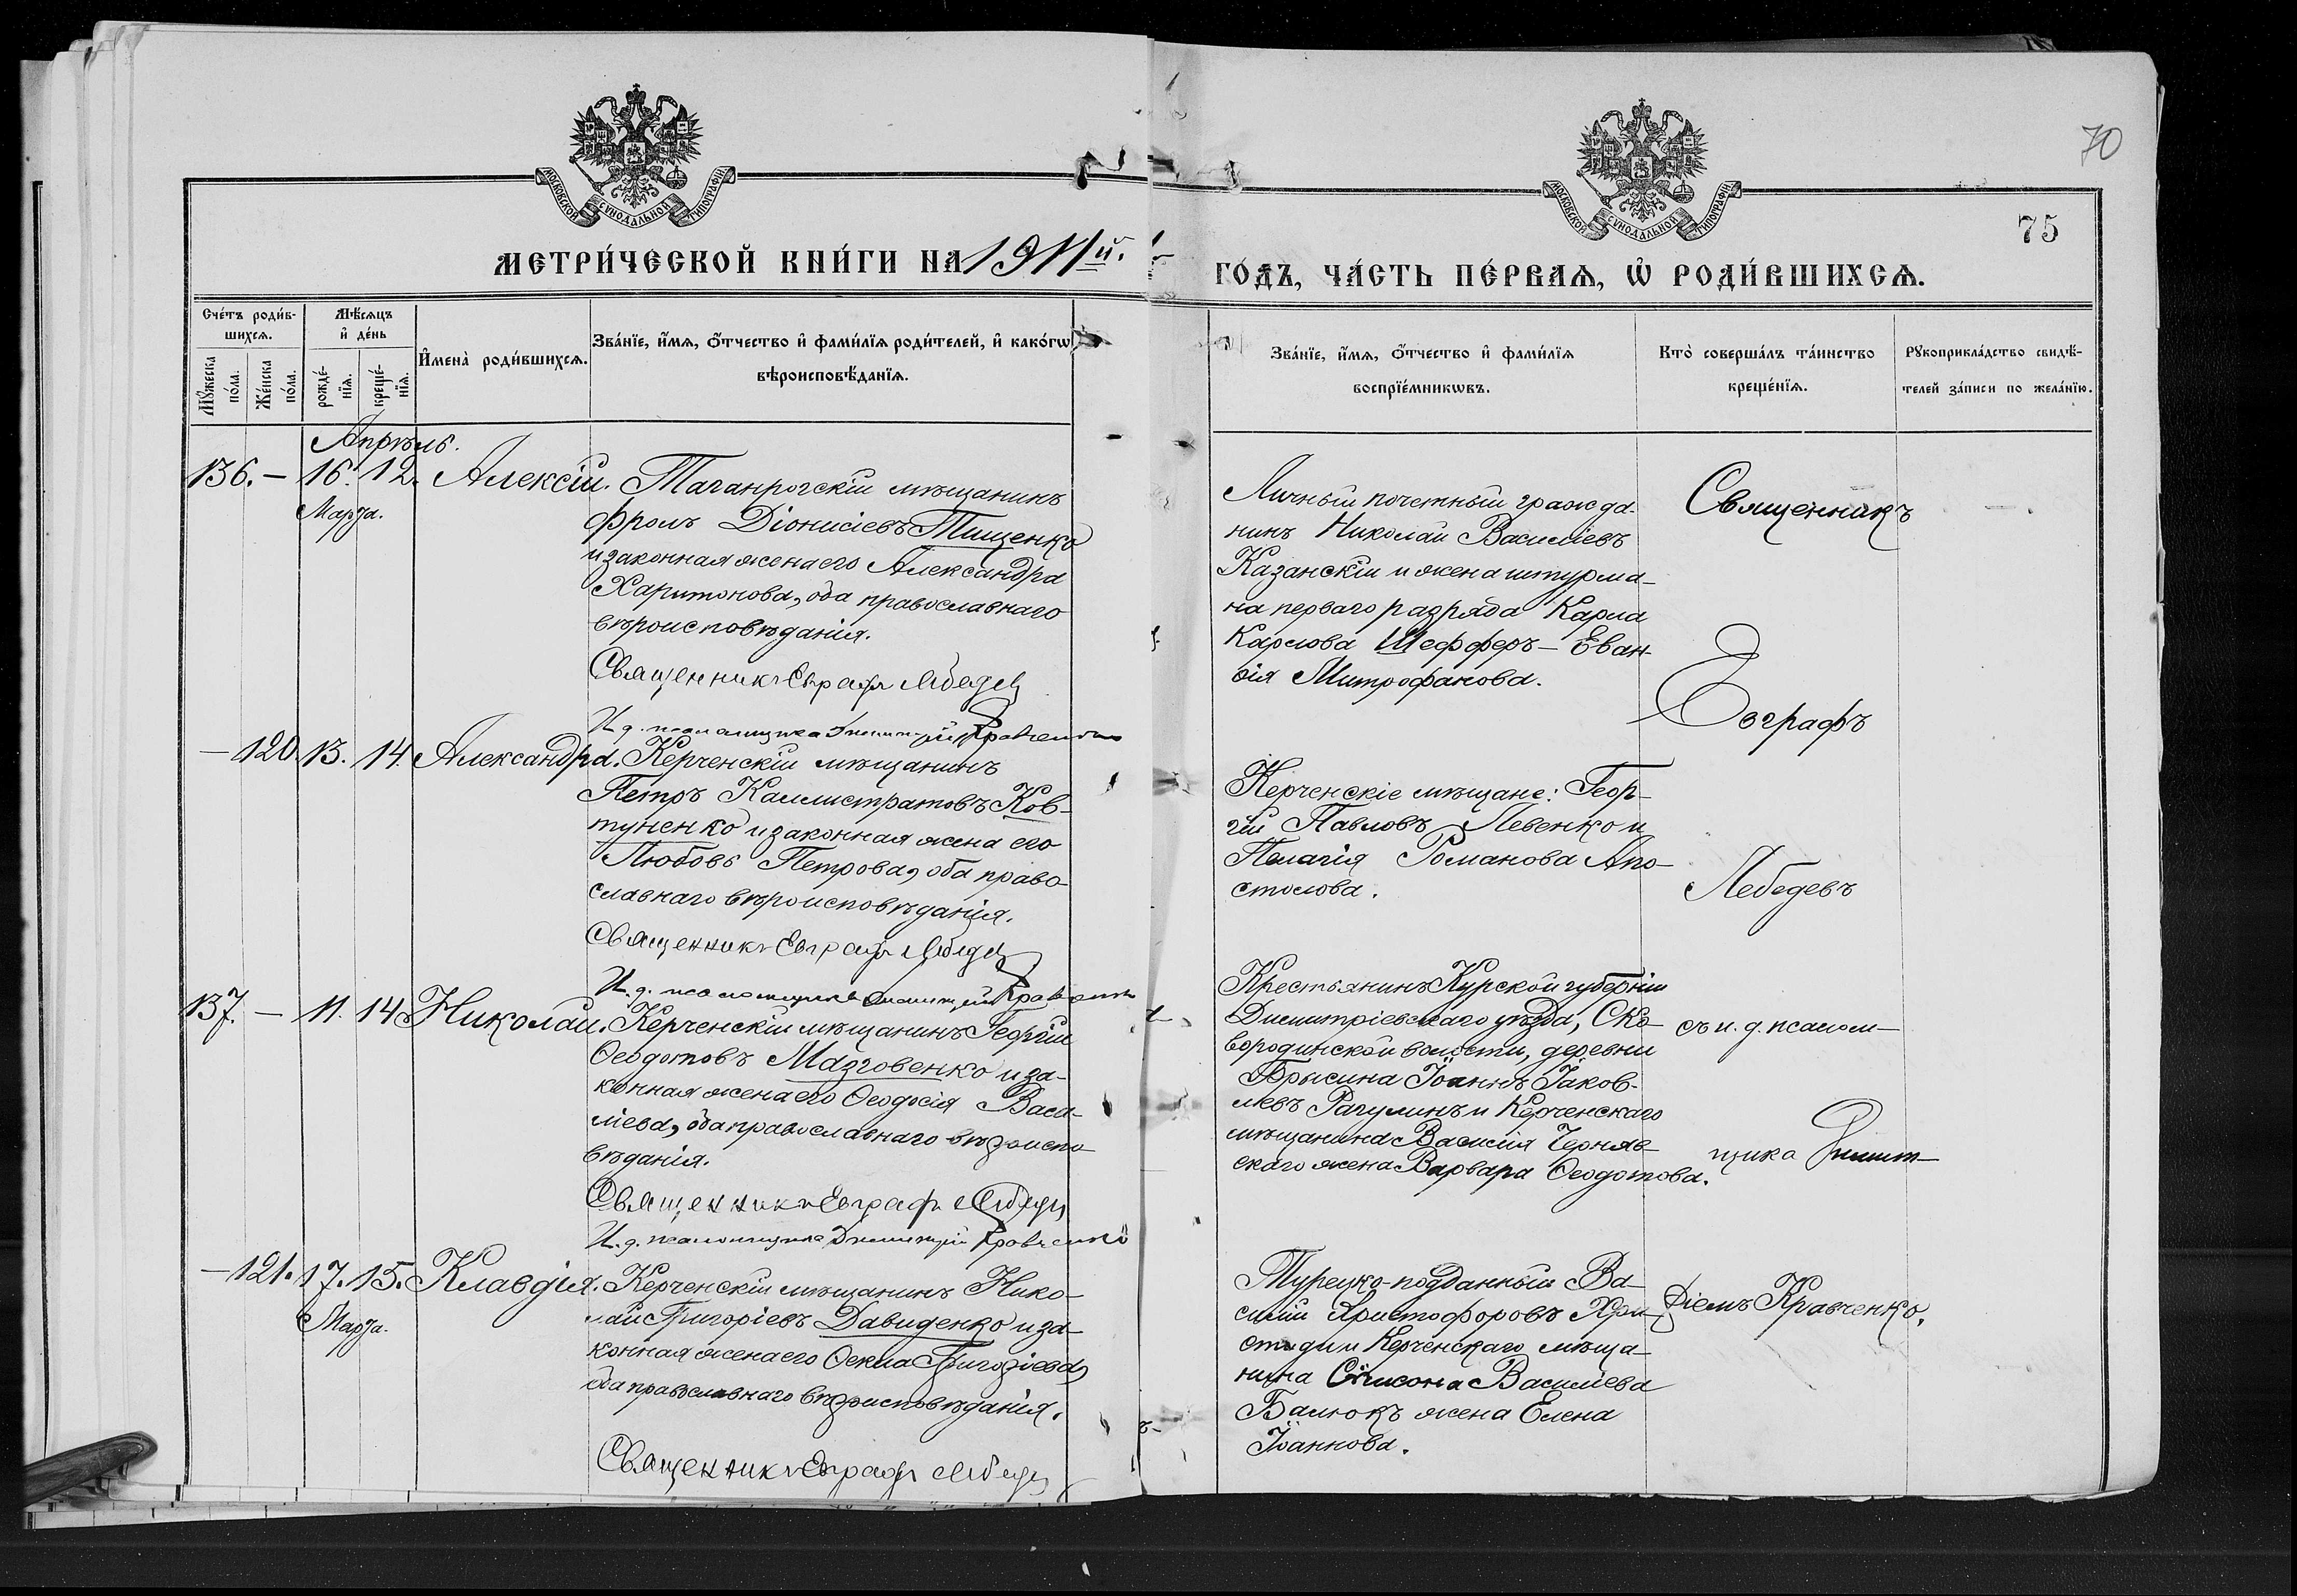 70
75
МОСКОВСКОЙ СѴНОДАЛЬНОЙ ТИПОГРАФІИ
МОСКОВСКОЙ СѴНОДАЛЬНОЙ ТИПОГРАФІИ
МЕТРИ́ЧЕСКОЙ КНИ́ГИ НА 1911й.
ГО́ДЪ, ЧА́СТЬ ПЕ́РВАѦ, Ѽ РОДИ́ВШИХСѦ.
Сче́тъ роди́в-
шихсѧ.
Мꙋ́жеска по́ла.
Же́нска по́ла.
Мѣ́сѧцъ
и҆ де́нь
рожде́-нїѧ.
креще́-нїѧ.
И҆мена̀ роди́вшихсѧ.
Зва́нїе, и҆́мѧ, ѻ҆́тчество и҆ фами́лїѧ роди́телей, и҆ како́гѡ
вѣроисповѣ́данїѧ.
Зва́нїе, и҆́мѧ, ѻ҆́тчество и҆ фами́лїѧ
воспрїе́мникѡвъ.
Кто̀ соверша́лъ та́инство
креще́нїѧ.
Рꙋкоприкла́дство свидѣ́-
телей за́писи по жела́нїю.
Апрѣль.
136. — 16. 12. Алексій.
Марта.
Таганрогскій мѣщанинъ
Фролъ Діонисіевъ Тищенко
и законная жена его Александра
Харитонова, оба православнаго
вѣроисповѣданія.
Священникъ Евграфъ Лебедевъ
И. д. псаломщика Димитрій Кравченко
Личный почетный гражда-
нинъ Николай Василіевъ
Казанскій и жена штурма-
на перваго разряда Карла
Карлова Шефферъ — Еван-
ѳія Митрофанова.
Священникъ
Евграфъ
— 120. 13. 14. Александра.
Керченскій мѣщанинъ
Петръ Каллистратовъ Ков-
туненко и законная жена его
Любовь Петрова, оба право-
славнаго вѣроисповѣданія.
Священникъ Евграфъ Лебедевъ
И. д. псаломщика Димитрій Кравченко
Керченскіе мѣщане: Геор-
гій Павловъ Левенко и
Пелагія Романова Апо-
столова.
Лебедевъ
137. — 11. 14. Николай.
Керченскій мѣщанинъ Георгій
Ѳеодотовъ Мазговенко и за-
конная жена его Ѳеодосія Васи-
ліева, оба православнаго вѣроиспо-
вѣданія.
Священникъ Евграфъ Лебедевъ
И. д. псаломщика Димитрій Кравченко
Крестьянинъ Курской губерніи
Димитріевскаго уѣзда, Ско-
вородинской волости, деревни
Брысина Іоаннъ Іаков-
левъ Рагулинъ и Керченскаго
мѣщанина Василія Черняв-
скаго жена Варвара Ѳеодотова.
съ и. д. псалом-
щика Димит-
— 121. 17. 15. Клавдія.
Марта.
Керченскій мѣщанинъ Нико-
лай Григоріевъ Давиденко и за-
конная жена его Ѳекла Григоріева,
оба православнаго вѣроисповѣданія.
Священникъ Евграфъ Лебедевъ
Турецко-подданный Ва-
силій Христофоровъ Хри-
стиди и Керченскаго мѣща-
нина Симеона Василіева
Балюкъ жена Елена
Іоаннова.
ріемъ Кравченко.